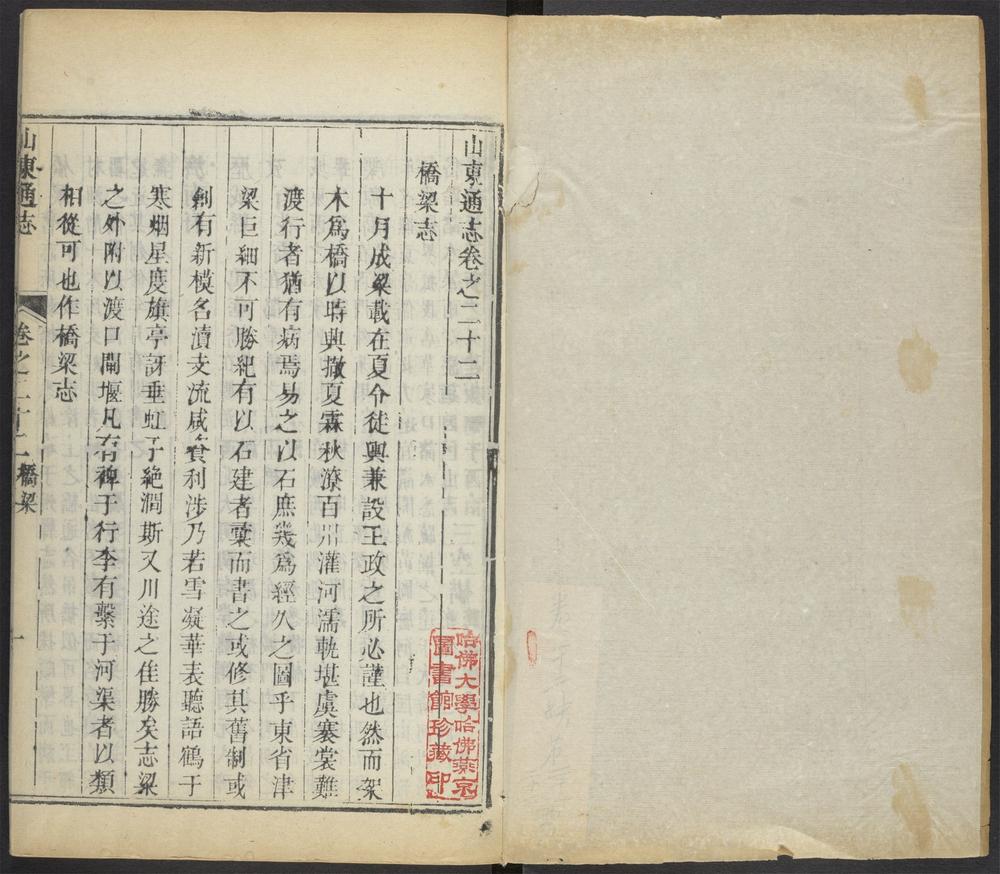 山東通志卷之二十二
橋梁志
十月成梁載在夏令徒輿兼設王政之所必謹也然而架
木爲橋以時興撤夏霖秋潦百川灌河濡軌堪虞褰裳難
渡行者猶有病焉易之以石庶幾爲經久之圖乎東省津
梁巨細不可勝紀有以石建者彚而書之或修其舊制或
創有新模名瀆支流咸食利涉乃若雪凝華表聽語鶴于
寒烟星度旗亭訝垂虹于絶澗斯又川途之佳勝矣志梁
之外附以渡口閘堰凡有裨于行李有繫于河渠者以類
相從可也作橋梁志
山東通志
卷之二十二 橋梁
一
哈佛大學哈佛燕京
圖書館珍藏印